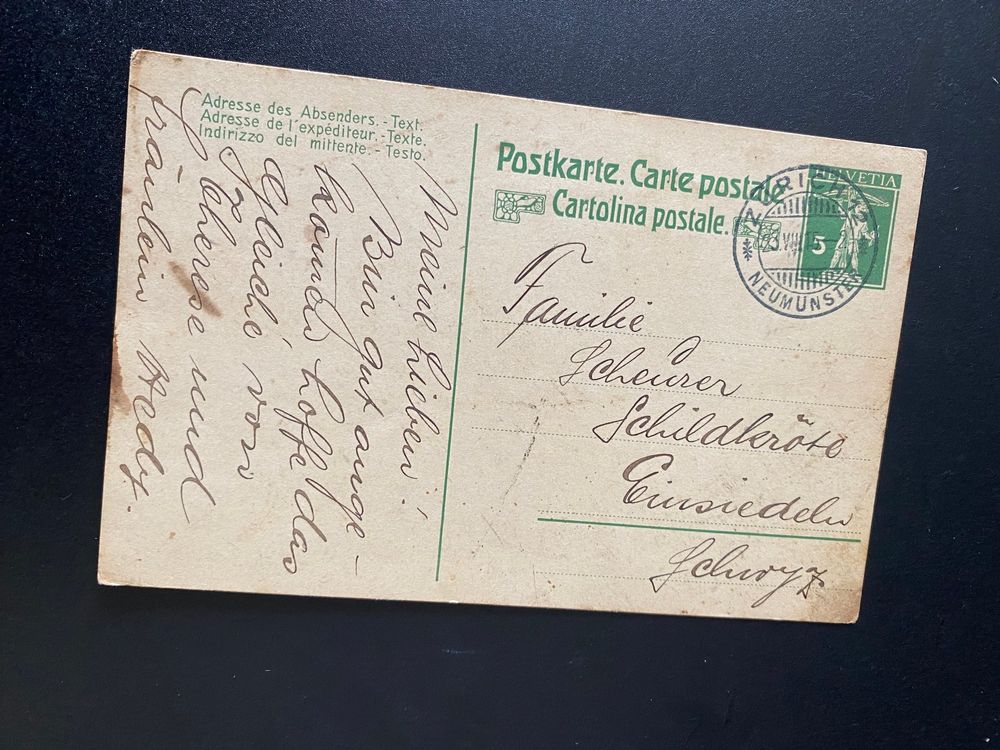 Adresse des Absenders. - Text.
Adresse de l'expéditeur. - Texte.
Indirizzo del mittente. - Testo.
Meine Lieben!
Bin gut ange-
kommen hoffe das
Gleiche von
Therese und
fräulein Hedy.
Postkarte. Carte postale.
Cartolina postale.
HELVETIA
5
ZÜRICH 12
NEUMÜNSTER
Familie
Scheurer
Schildkröte
Einsiedeln
Schwyz